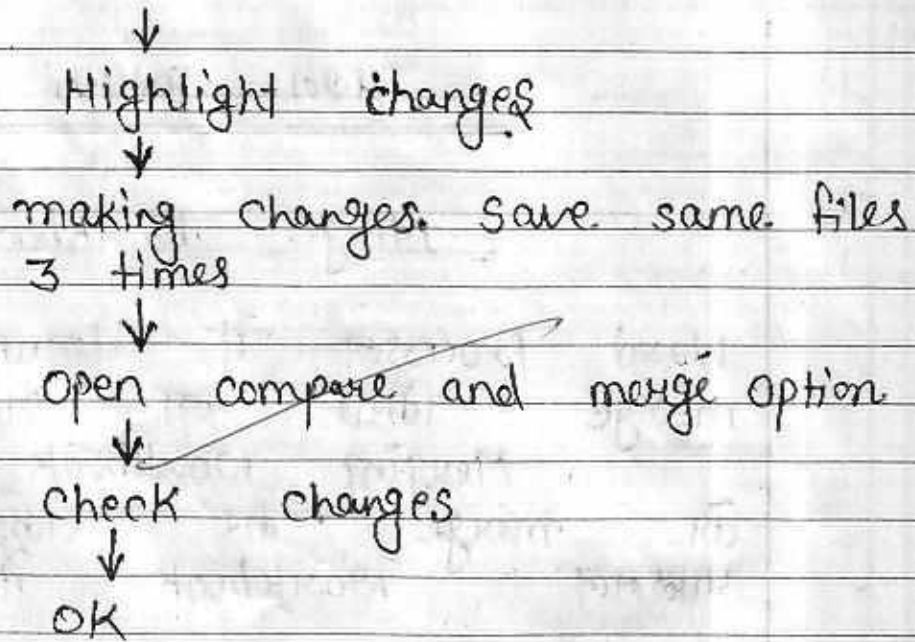 ↓
Highlight changes
↓
making changes. Save same files
3 times
↓
open compare and merge option
↓
check changes
↓
OK